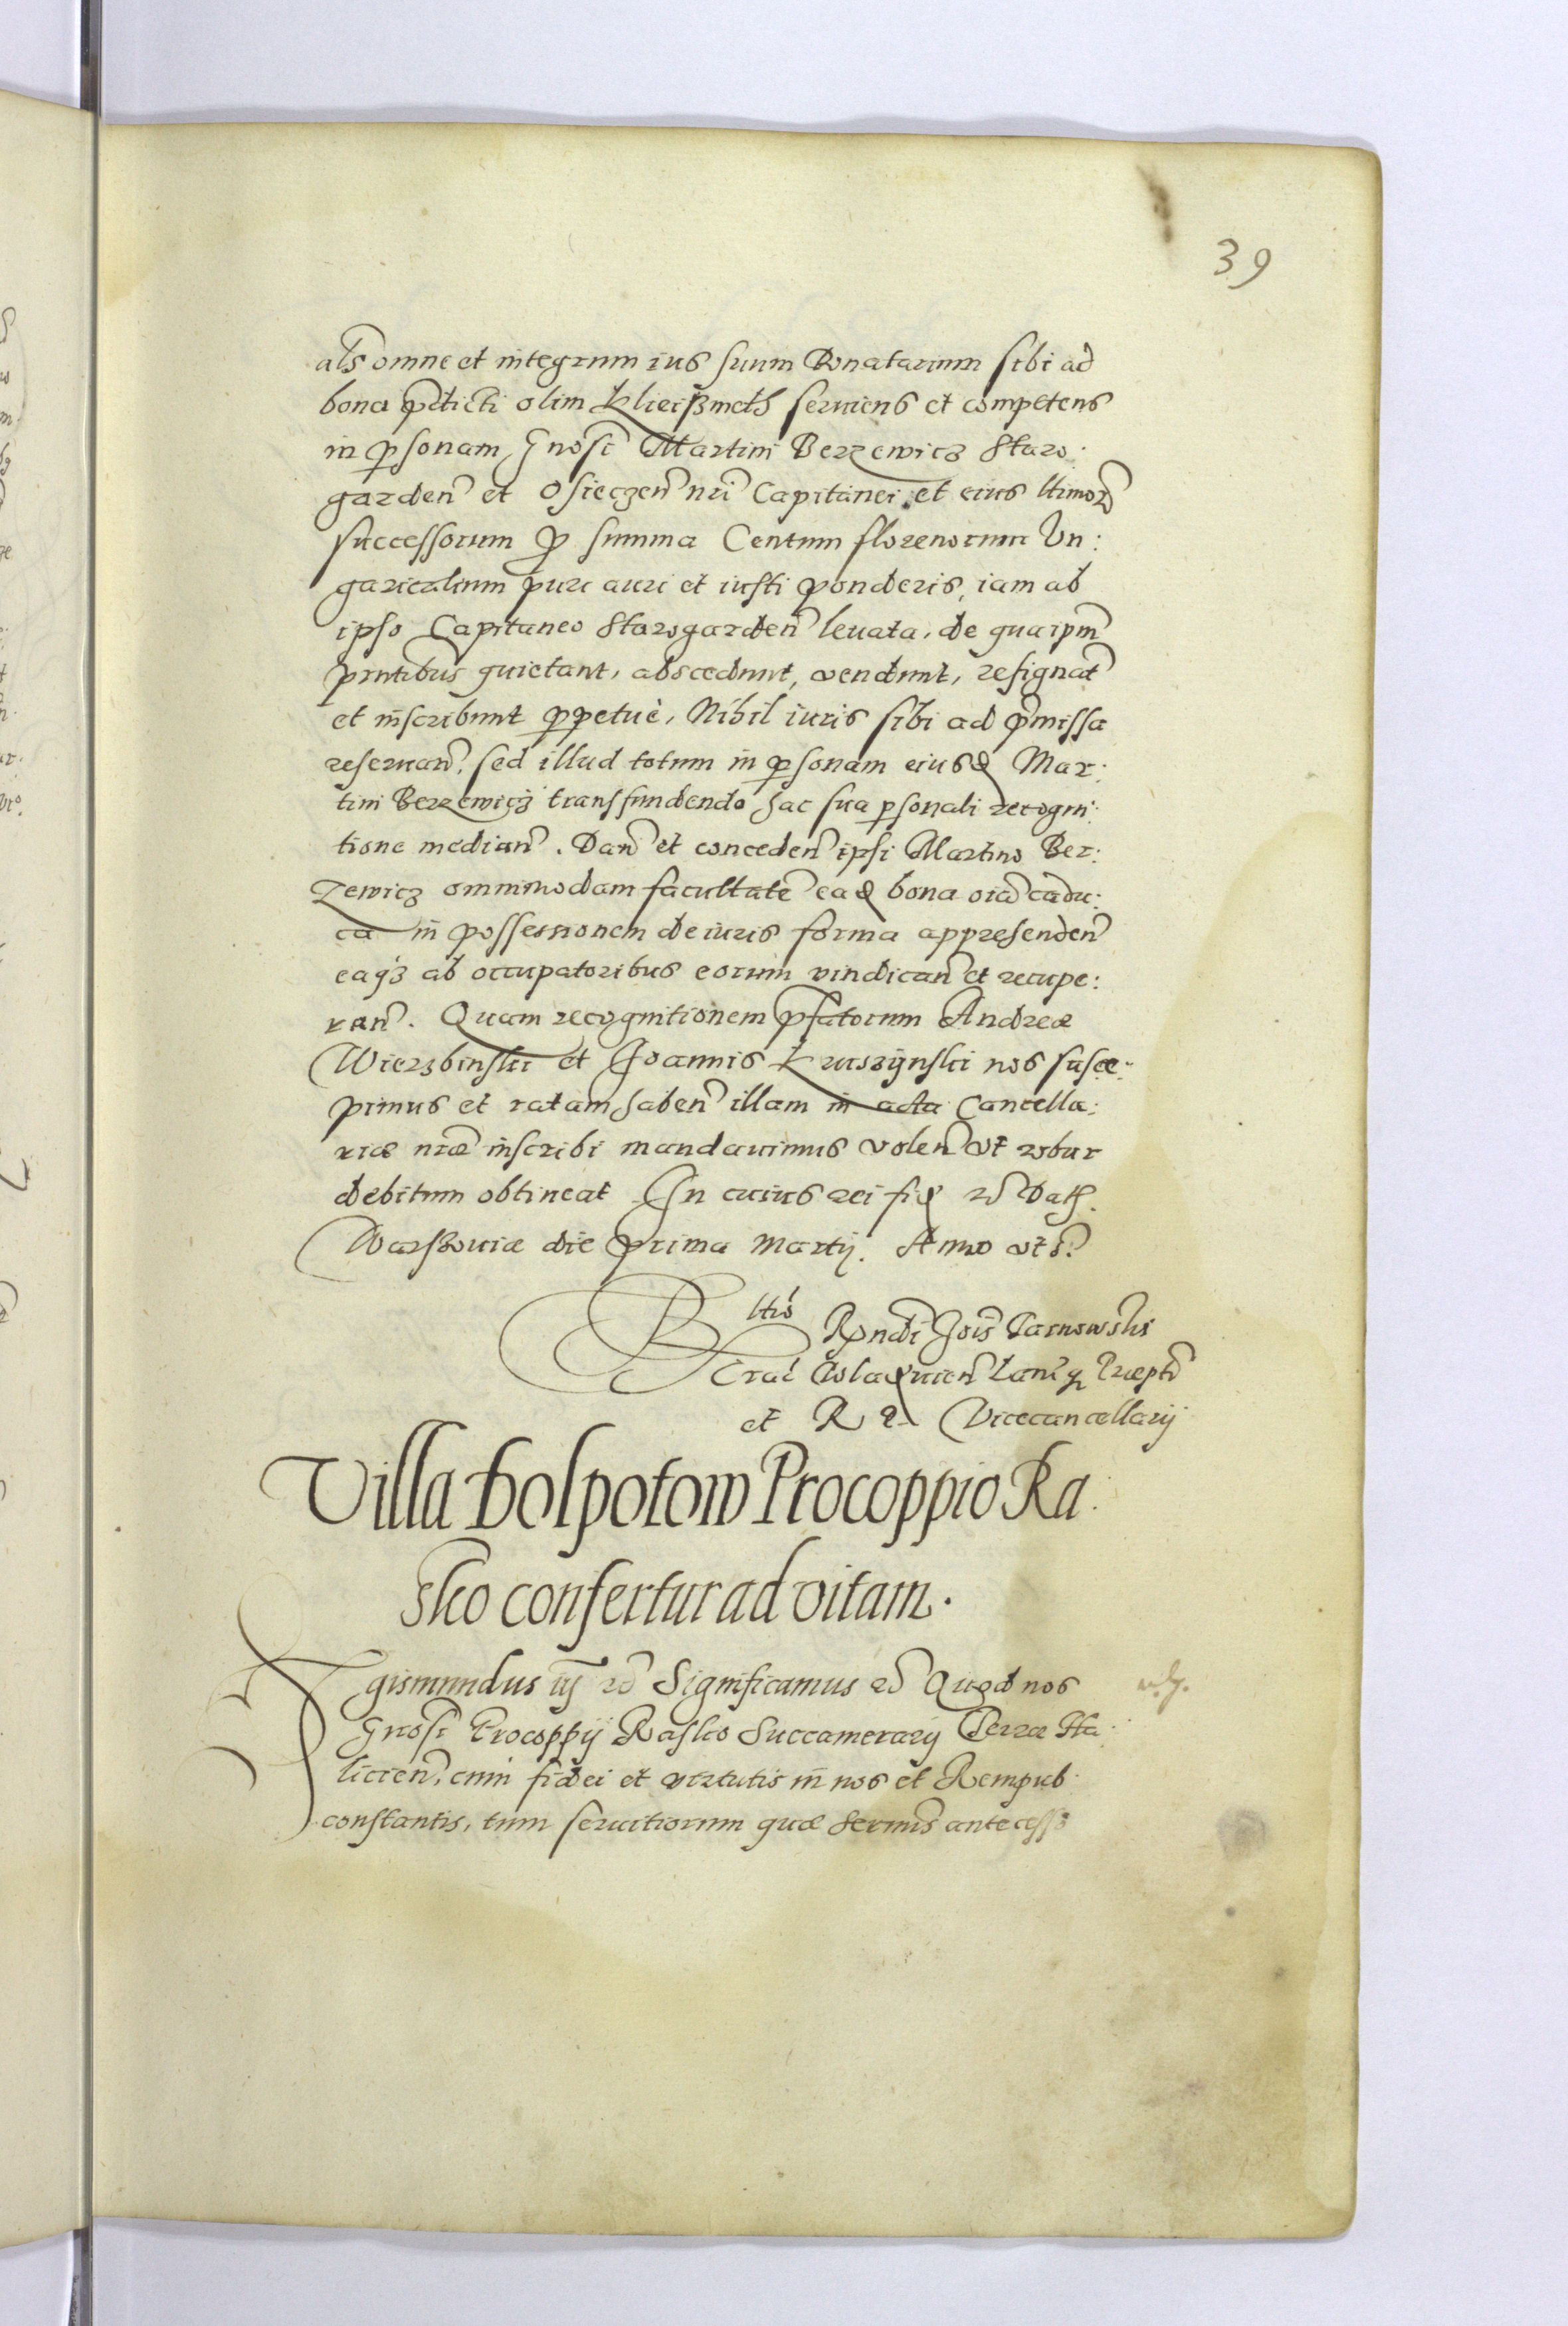 39
als omne et integrum ius suum Donatarium sibi ad
bona pdicti olim Kleiszmeth seruiens et competens
in psonam Gnosi Martini Berzewicz Staro:
garden et Osieczen nri Capitanei et eius ltimor
successorum p summa Centum florenorum Vn:
garicalium puri auri et iusti ponderis, iam ab
ipso Capitaneo Starogarden leuata, de qua ipm
pntibus quietant, abscedunt, vendunt, resignat
et inscribunt ppetuè, Nihil iuris sibi ad pmissa
reseruan, sed illud totum in psonam eiusd Mar:
tini Berzewicz transfundendo hac sua psonali recogni:
tione median. Dan et conceden ipsi Martino Ber:
zewicz omnimodam facultate ead bona oia cadu:
ca in possessionem de iuris forma apprehenden
eaq3 ab occupatoribus eorum vindican et recupe:
ran. Quam recognitionem pfatorum Andreæ
Wierzbinski et Joannis Kruszynski nos susce:
pimus et ratam haben illam in acta Cancella:
riæ nræ inscribi mandauimus volen vt robur
debitum obtineat In cuius rei fid Dat.
Warszouiæ die prima Martij. Anno vt s.
Rltio Rndi Jois Tarnowski
Crac Wladislauien Lanc q Præpti
et R P Vicecancellarij
Villa Holpotow Procoppio Ra:
sko confertur ad vitam.
Sigismundus iij Significamus Quod nos
Gnosi Procoppij Rasko Succamerarij Terræ Ha:
licien, cum fidei et virtutis in nos et Rempub:
constantis, tum seruitiorum quæ Sermis antecess